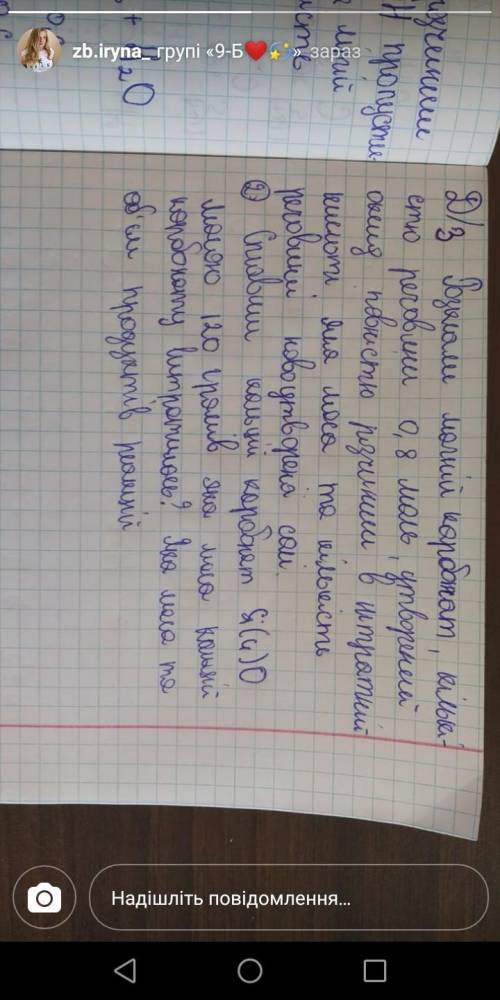 zb.iryna_ групі «9-Б❤️💫» зараз
розчинили
пропусти
+ H2O
Д/З Розклали магній карбонат, кількі-
стю речовини 0,8 моль, утворений
оксид повністю розчинили в нітратній
кислоті яка маса та кількість
речовини новоутвореної солі.
② Сплавили кальцій карбонат Si(IV)O
масою 120 грамів яка маса кальцій
карбонату витратилась? Яка маса та
об'єм продуктів реакцій
Надішліть повідомлення...